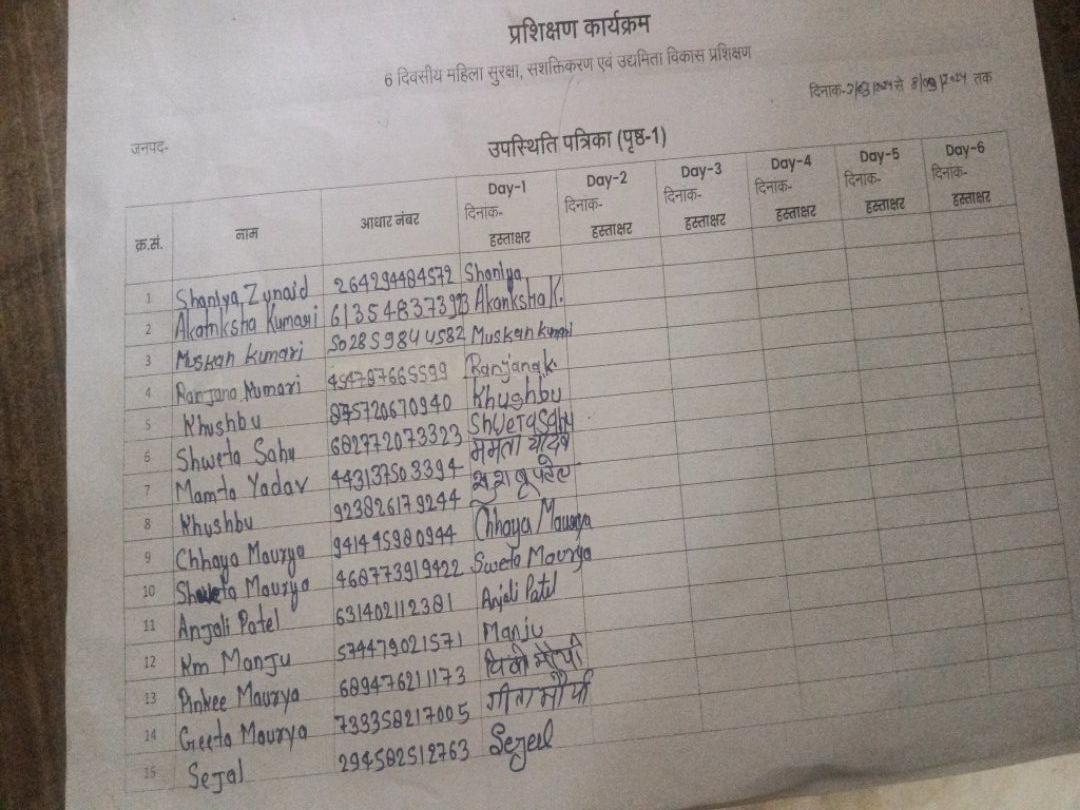 प्रशिक्षण कार्यक्रम
6 दिवसीय महिला सुरक्षा, सशक्तिकरण एवं उद्यमिता विकास प्रशिक्षण
दिनाक- से तक
जनपद-
उपस्थिति पत्रिका (पृष्ठ-1)
क्र.सं. नाम आधार नंबर Day-1 दिनाक- हस्ताक्षर Day-2 दिनाक- हस्ताक्षर Day-3 दिनाक- हस्ताक्षर Day-4 दिनाक- हस्ताक्षर Day-5 दिनाक- हस्ताक्षर Day-6 दिनाक- हस्ताक्षर
1 Shaniya Zunaid 264294484572 Shaniya
2 Akanksha Kumari Akanksha K.
3 Muskan Kumari 502859844582 Muskan Kumari
4 Ranjana Kumari 454787665599 Ranjana K.
5 Khushbu 875720670940 Khushbu
6 Shweta Sahu 682772073323 Shweta Sahu
7 Mamta Yadav 443137503394 ममता यादव
8 Khushbu 923826179244
9 Chhaya Maurya 941445980944 Chhaya Maurya
10 Shweta Maurya 468773919422 Sweta Maurya
11 Anjali Patel 631402112381 Anjali Patel
12 Km Manju 574479021571 Manju
13 Pinkee Maurya 689476211173
14 Geeta Maurya 733358217005 गीता मौर्या
15 Sejal 294582512763 Sejal